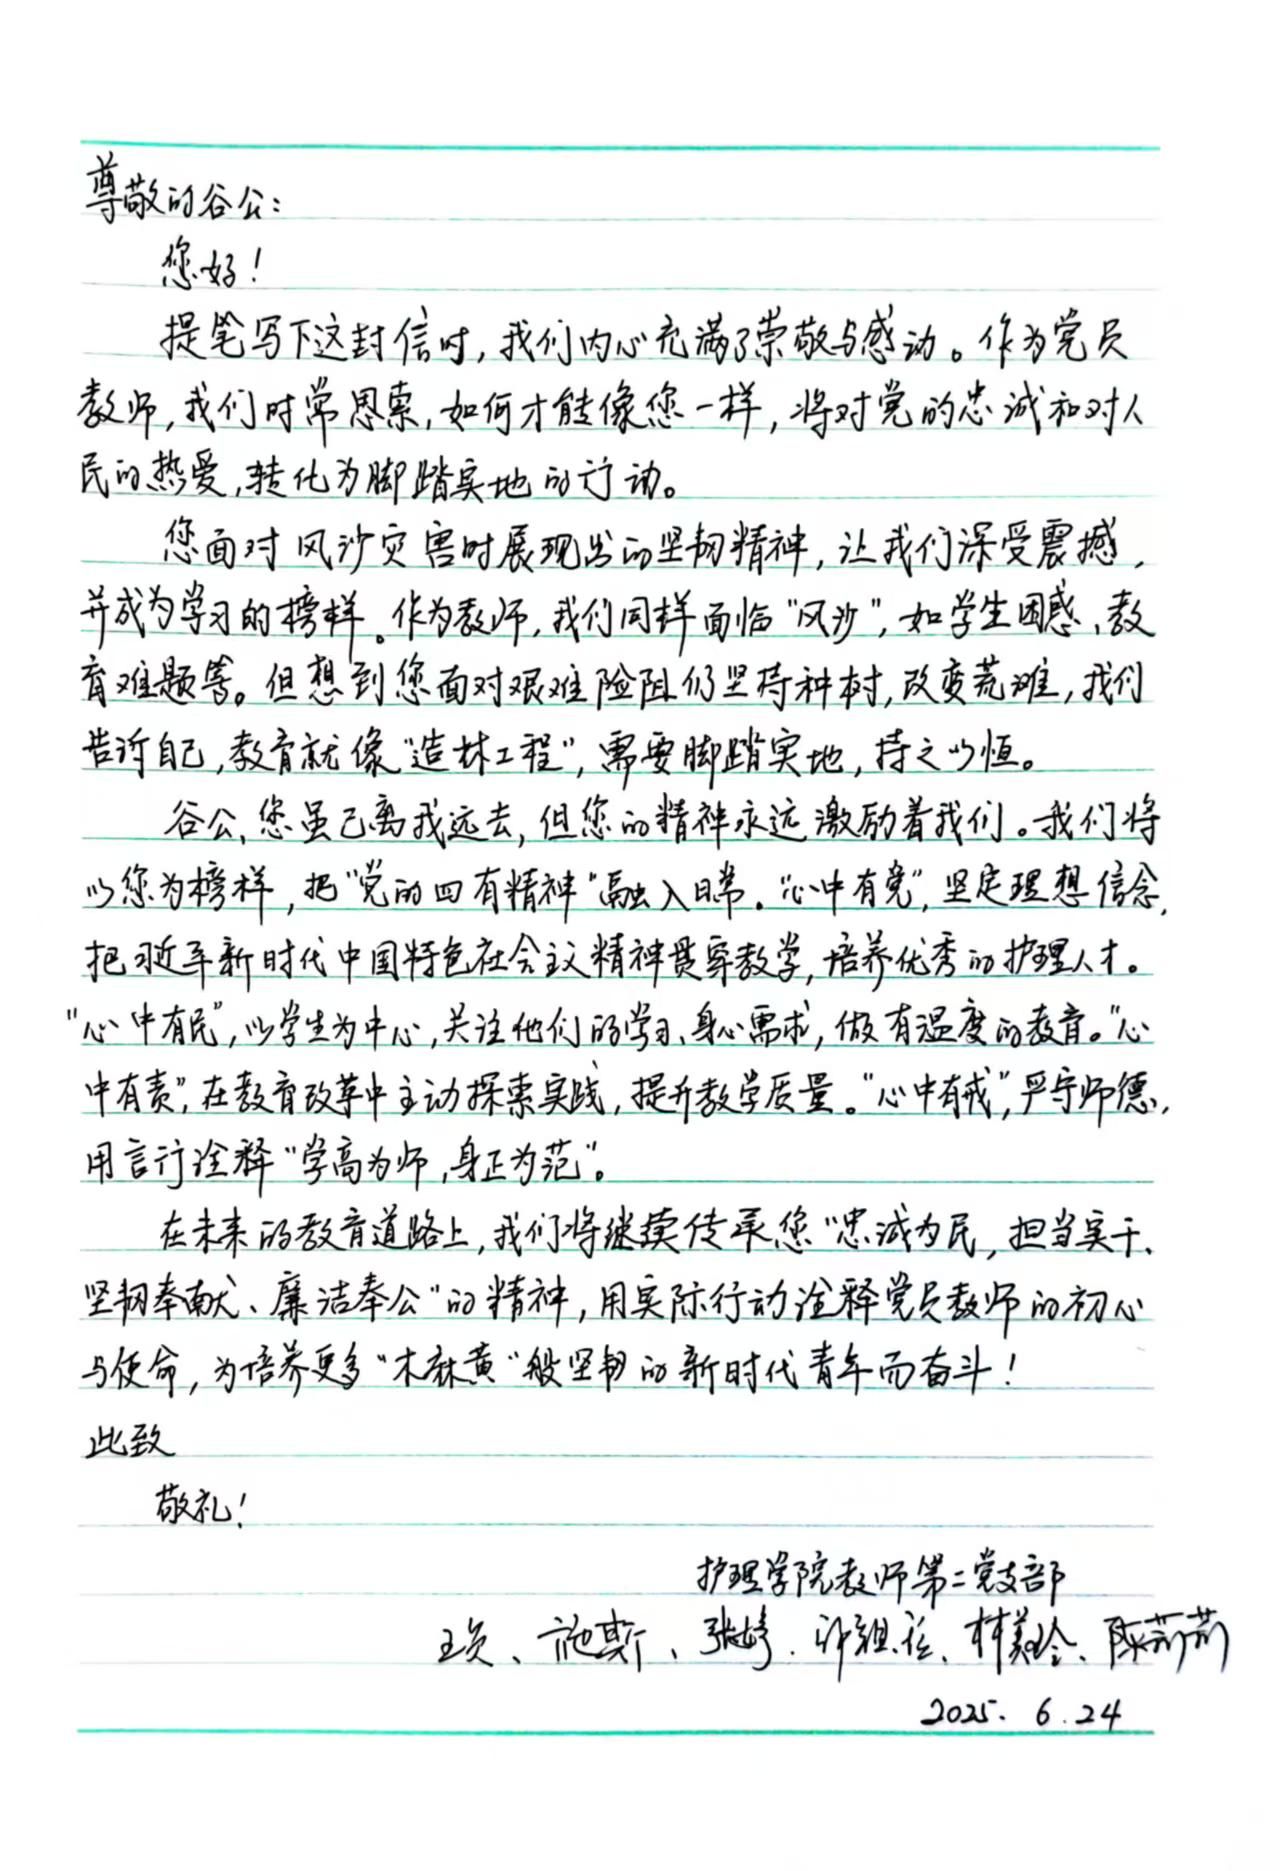 尊敬的谷公：
您好！
提笔写下这封信时，我们内心充满了崇敬与感动。作为党员
教师，我们时常思索，如何才能像您一样，将对党的忠诚和对人
民的热爱，转化为脚踏实地的行动。
您面对风沙灾害时展现出的坚韧精神，让我们深受震撼，
并成为学习的榜样。作为教师，我们同样面临“风沙”，如学生困惑、教
育难题等。但想到您面对艰难险阻仍坚持种树，改变荒滩，我们
告诉自己，教育就像“造林工程”，需要脚踏实地，持之以恒。
谷公，您虽已离我远去，但您的精神永远激励着我们。我们将
以您为榜样，把“党的四有精神”融入日常。“心中有党”，坚定理想信念，
把习近平新时代中国特色社会主义精神贯穿教学，培养优秀的护理人才。
“心中有民”，以学生为中心，关注他们的学习、身心需求，做有温度的教育。“心
中有责”，在教育改革中主动探索实践，提升教学质量。“心中有戒”，严守师德，
用言行诠释“学高为师，身正为范”。
在未来的教育道路上，我们将继续传承您“忠诚为民，担当实干、
坚韧奉献、廉洁奉公”的精神，用实际行动诠释党员教师的初心
与使命，为培养更多“木麻黄”般坚韧的新时代青年而奋斗！
此致
敬礼！
护理学院教师第二党支部
施斯、张婷、林美玲、陈莉莉
2025.6.24